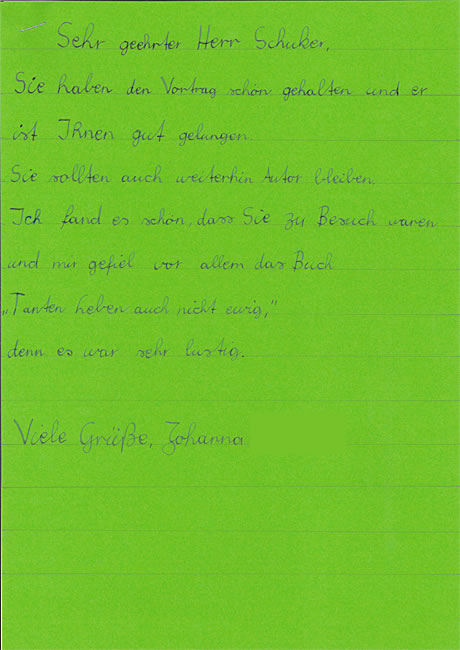 Sehr geehrter Herr Schuker,
Sie haben den Vortrag schön gehalten und er
ist Ihnen gut gelungen.
Sie sollten auch weiterhin Autor bleiben.
Ich fand es schön, dass Sie zu Besuch waren
und mir gefiel vor allem das Buch
„Tanten leben auch nicht ewig,"
denn es war sehr lustig.
Viele Grüße, Johanna